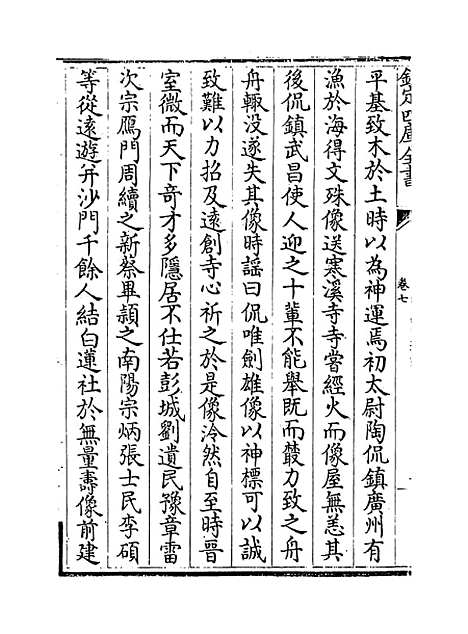 欽定四庫全書
卷七
平基致木於土時以為神運焉初太尉陶侃鎮廣州有
漁於海得文殊像送寒溪寺寺嘗經火而像屋無恙其
後侃鎮武昌使人迎之十輩不能舉既而藂力致之舟
舟輙没遂失其像時謡曰侃唯劍雄像以神標可以誠
致難以力招及逺創寺心祈之於是像泠然自至時晉
室微而天下奇才多隱居不仕若彭城劉遺民豫章雷
次宗鴈門周續之新蔡畢頴之南陽宗炳張士民李碩
等從逺遊并沙門千餘人結白蓮社於無量壽像前建